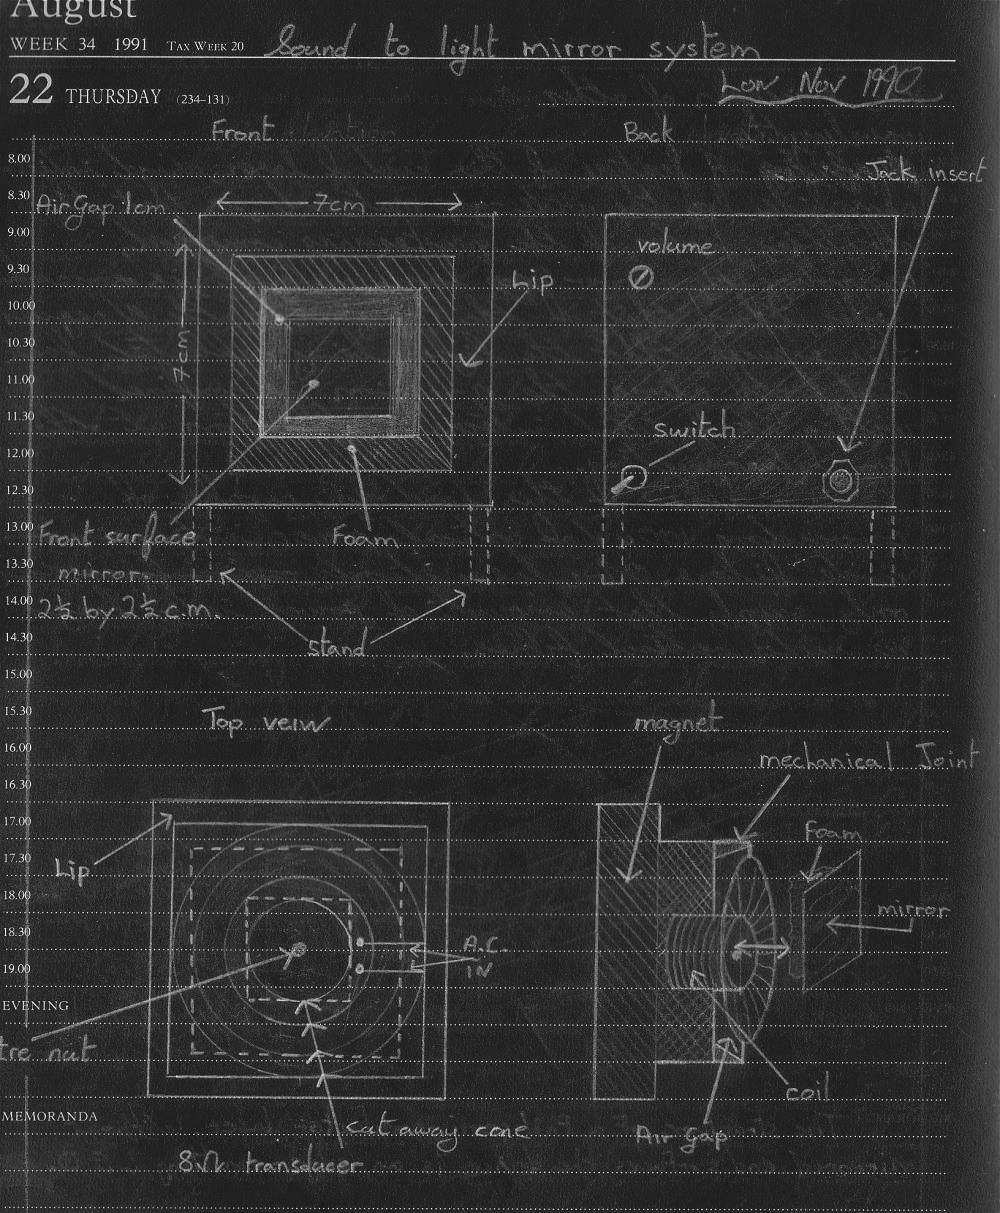 August
WEEK 34 1991 TAX WEEK 20
Sound to light mirror system
22 THURSDAY (234–131)
Nov 1990
Front
Back
8.00
Jack insert
8.30
Air Gap 1cm
7cm
9.00
volume
9.30
Lip
10.00
10.30
7cm
11.00
11.30
switch
12.00
12.30
13.00
Front surface
Foam
13.30
mirror.
14.00
2½ by 2½ c.m.
14.30
stand
15.00
15.30
Top veiw
magnet
16.00
mechanical Joint
16.30
17.00
Foam
17.30
Lip
18.00
mirror
18.30
A.C.
IN
19.00
EVENING
tre nut
coil
MEMORANDA
cut away cone
Air Gap
8Ω transducer